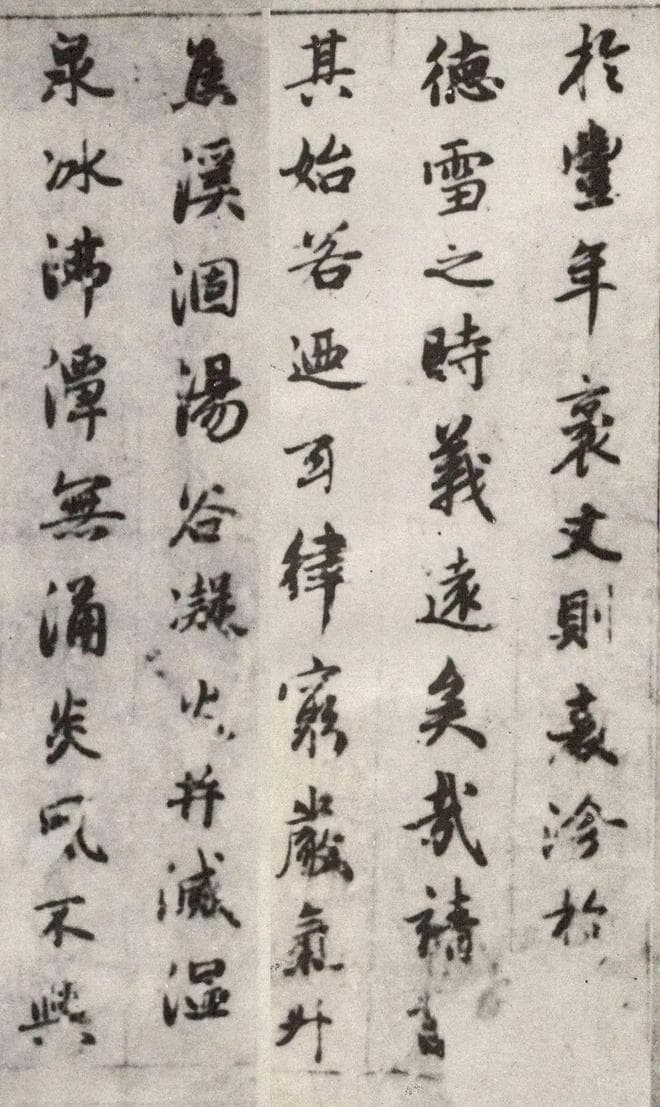 於豐年袤丈則表沴於
德雪之時義遠矣哉請言
其始若迺玄律窮嚴氣升
焦溪涸湯谷凝火井滅溫
泉冰沸潭無涌炎風不興